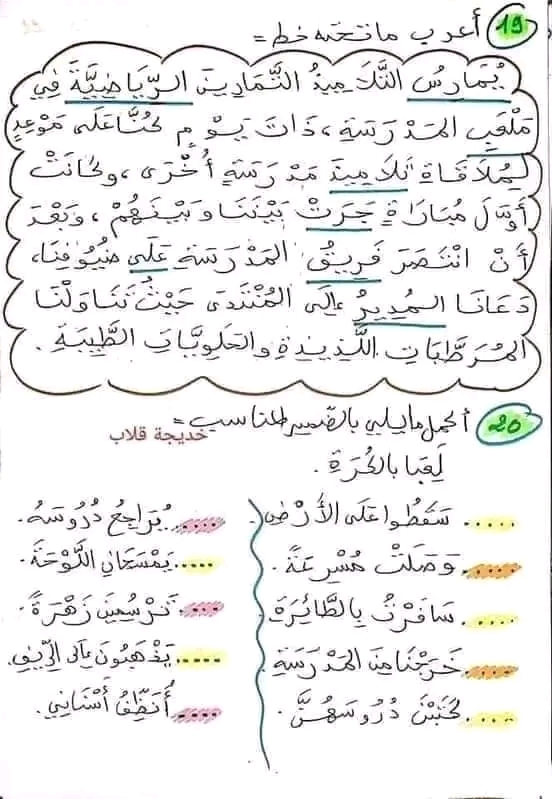 19 أعرب ما تحته خط =
يُمَارِسُ التَّلَامِيذُ التَّمَارِينَ الرِّيَاضِيَّةَ فِي
مَلْعَبِ المَدْرَسَةِ، ذَاتَ يَوْمٍ كُنَّا عَلَى مَوْعِدٍ
لِمُلَاقَاةِ تَلَامِيذَ مَدْرَسَةٍ أُخْرَى، وكَانَتْ
أَوَّلَ مُبَارَاةٍ جَرَتْ بَيْنَنَا وَبَيْنَهُمْ، وَبَعْدَ
أَنْ انْتَصَرَ فَرِيقُ المَدْرَسَةِ عَلَى ضُيُوفِنَا،
دَعَانَا المُدِيرُ إِلَى المُنْتَدَى حَيْثُ تَنَاوَلْنَا
المُرَطَّبَاتِ اللَّذِيذَةِ والحَلَوِيَّاتِ الطَّيِّبَةِ.
20 أكمل مايلي بالضمير المناسب =
خديجة قلاب
لَعِبَا بِالكُرَةِ.
..... سَقَطُوا عَلَى الأَرْضِ
..... وَصَلَتْ مُسْرِعَةً.
..... سَافَرْتُ بِالطَّائِرَةِ
..... خَرَجْنَا مِنَ المَدْرَسَةِ
..... كَتَبْنَ دُرُوسَهُنَّ.
..... يُرَاجِعُ دُرُوسَهُ.
..... يَمْسَحَانِ اللَّوْحَةَ.
..... تَرْسُمِينَ زَهْرَةً.
..... يَذْهَبُونَ إِلَى الرِّيفِ.
..... أُنَظِّفُ أَسْنَانِي.